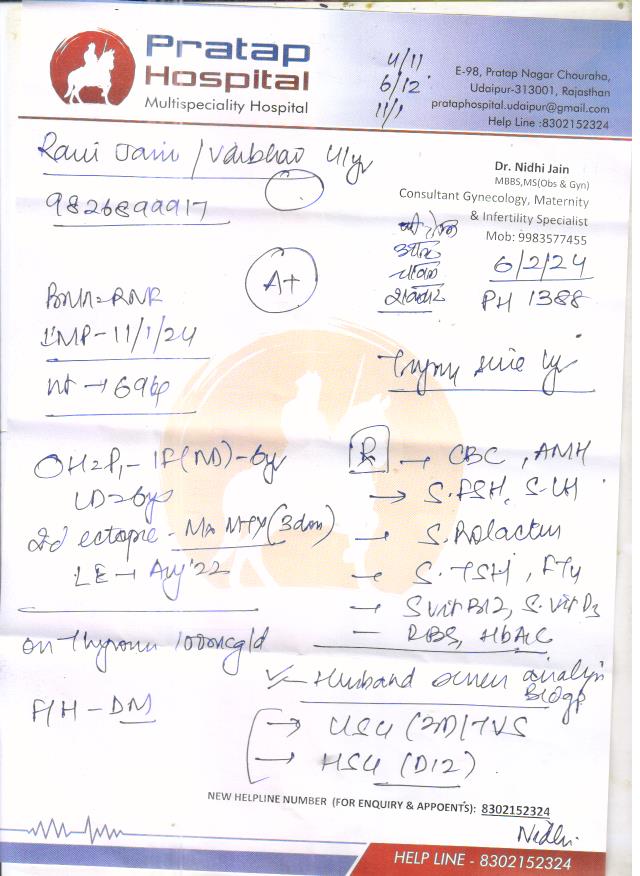 Pratap
Hospital
Multispeciality Hospital
4/11
6/12
11/1
E-98, Pratap Nagar Chouraha,
Udaipur-313001, Rajasthan
prataphospital.udaipur@gmail.com
Help Line :8302152324
Dr. Nidhi Jain
MBBS,MS(Obs & Gyn)
Consultant Gynecology, Maternity
& Infertility Specialist
Mob: 9983577455
9826899917
A+
6/2/24
PH 1388
LMP-11/1/24
Trying since 1yr
OH=P1-1F(ND)-6yr
LD=6yrs
2d ectopic - (3dm)
LE → Aug'22
R → CBC, AMH
→ S.FSH, S.LH
→ S.Prolactin
→ S.TSH, FT4
→ S vit B12, S.Vit D3
— RBS, HbA1C
on Thyronorm 100mcg/d
F/H - DM
✓ Husband semen analysis
→ USG (2D)/TVS
→ HSG (D12)
NEW HELPLINE NUMBER (FOR ENQUIRY & APPOENTS): 8302152324
Nidhi
HELP LINE - 8302152324